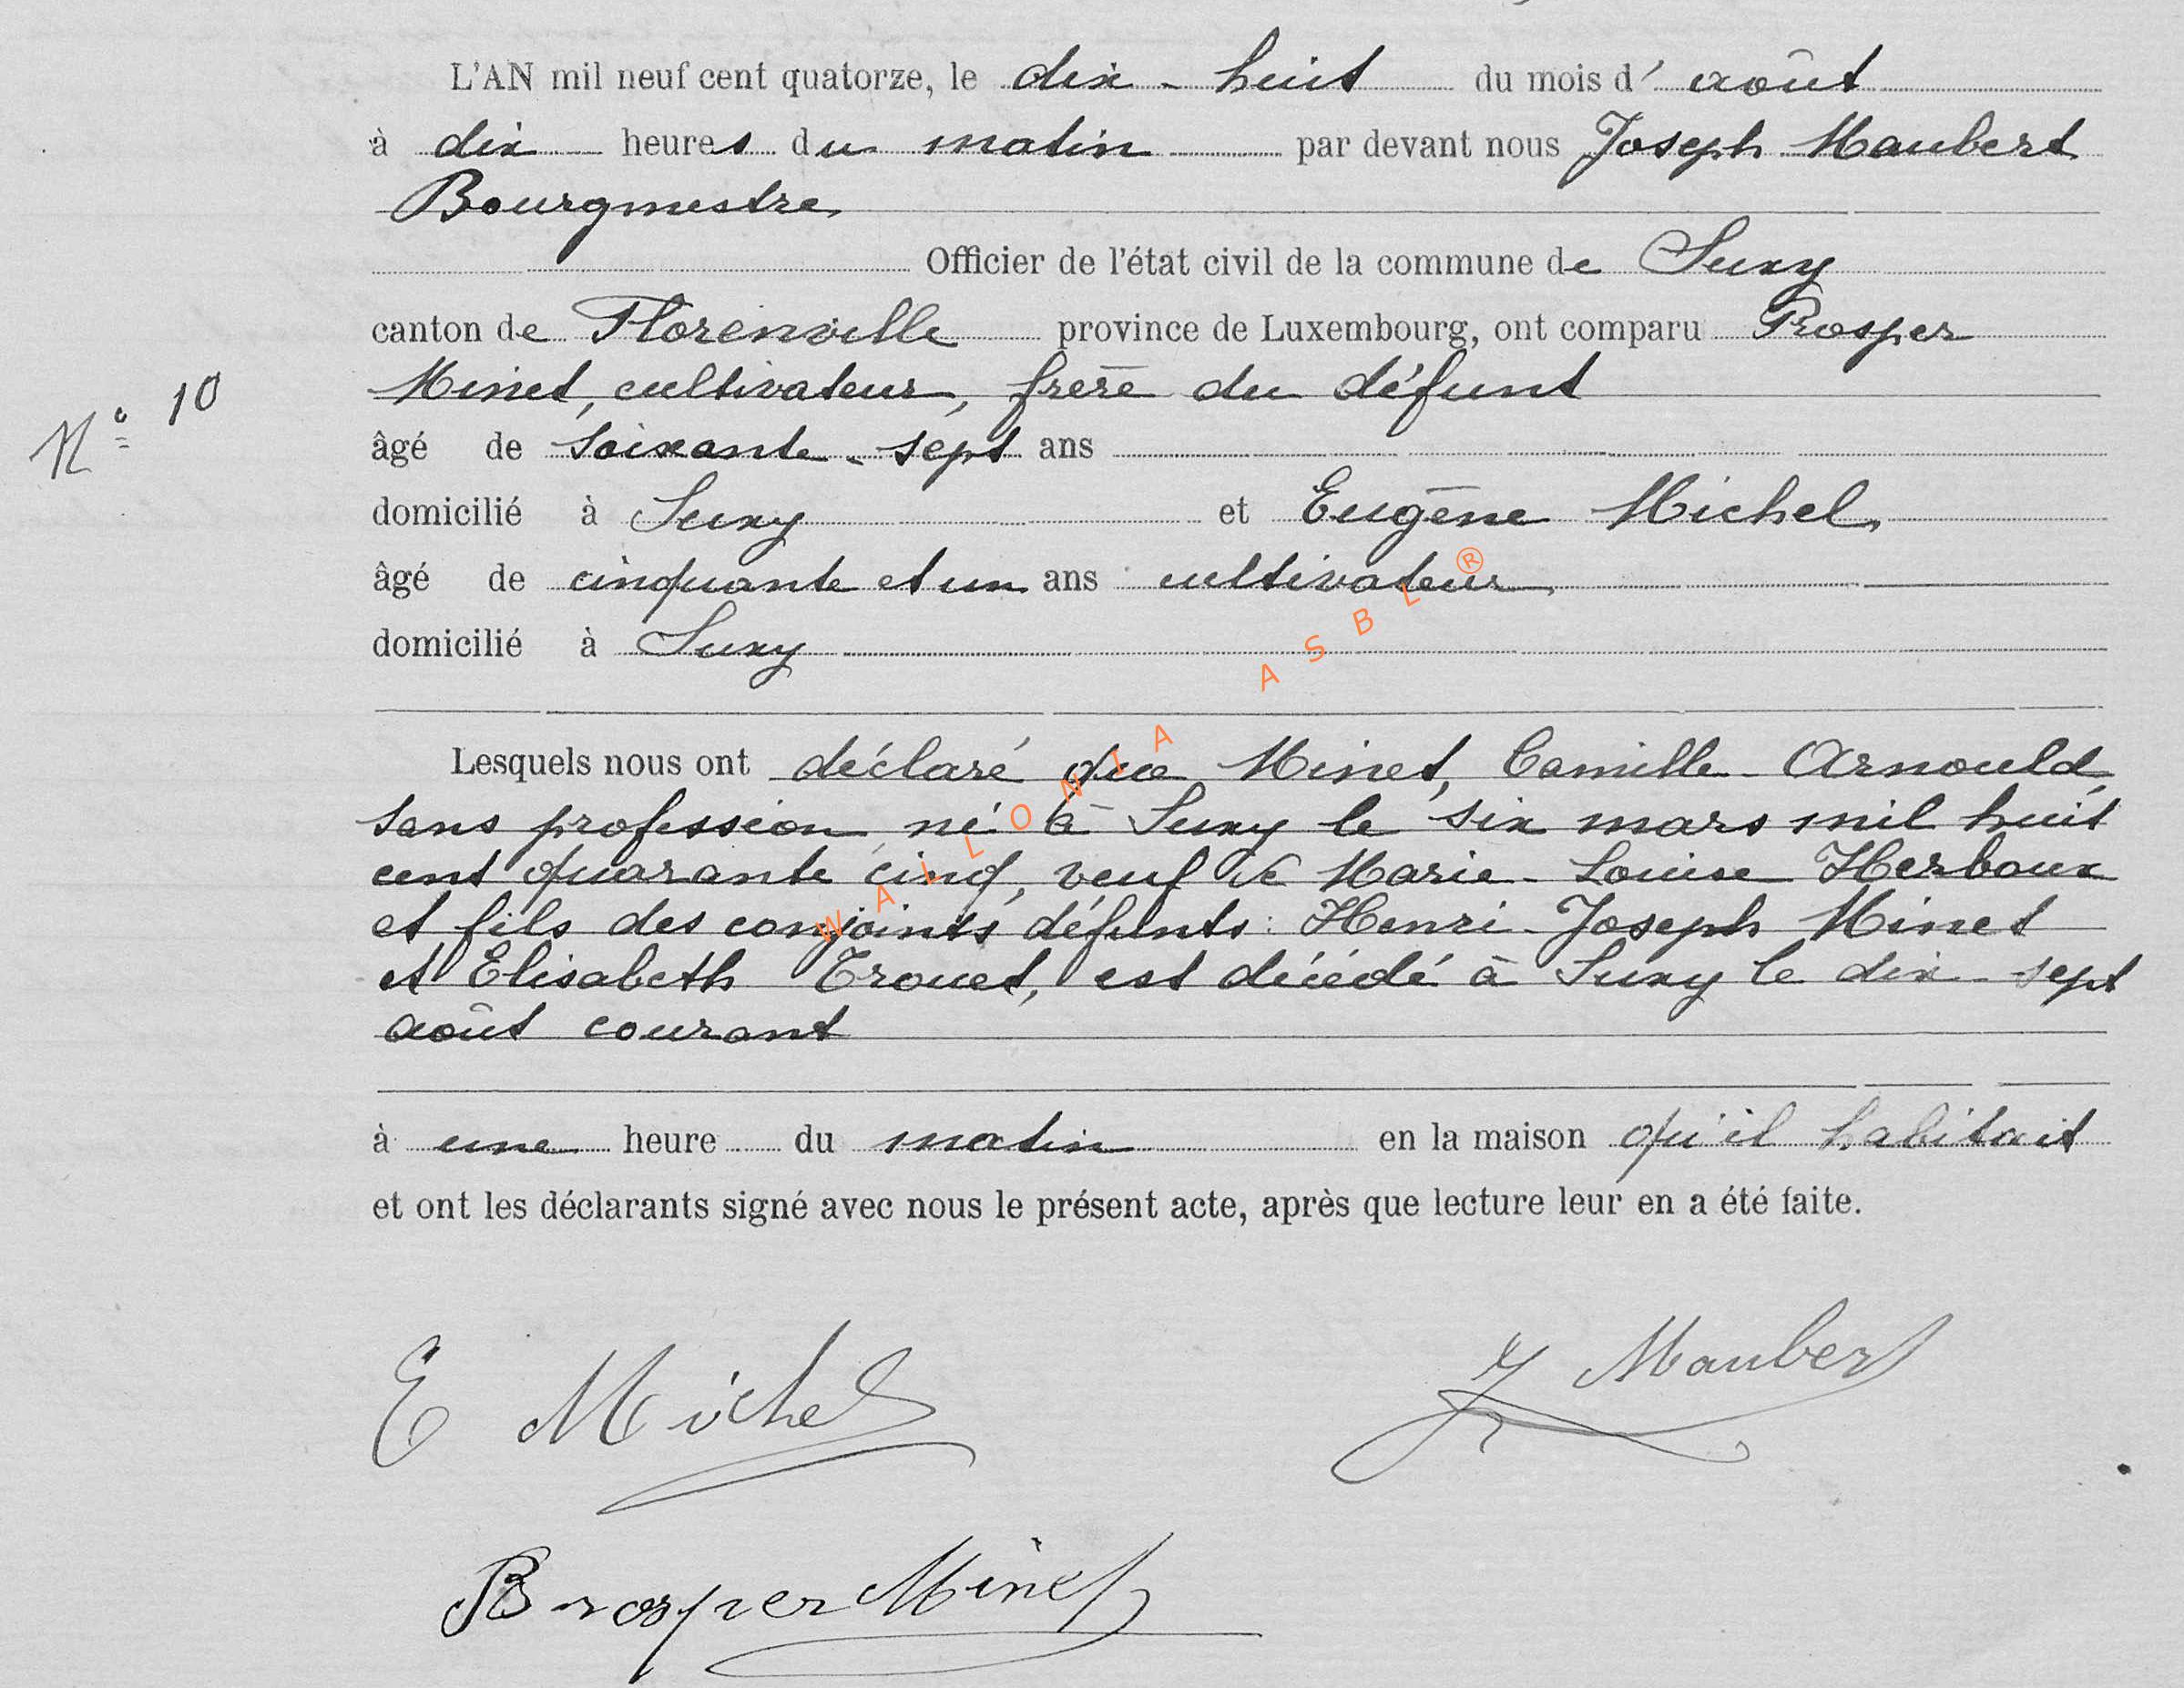 L'AN mil neuf cent quatorze, le dix-huit du mois d'août
à dix heures du matin par devant nous Joseph Maubert
Bourgmestre
Officier de l'état civil de la commune de Suxy
canton de Florenville province de Luxembourg, ont comparu Prosper
Minet, cultivateur, frère du défunt
N° 10
âgé de soixante-sept ans
domicilié à Suxy et Eugène Michel,
âgé de cinquante et un ans cultivateur
domicilié à Suxy
Lesquels nous ont déclaré que Minet, Camille-Arnould,
sans profession, né à Suxy le six mars mil huit
cent quarante cinq, veuf de Marie-Louise Herboux
et fils des conjoints défunts: Henri-Joseph Minet
et Elisabeth Trouet, est décédé à Suxy le dix-sept
août courant
à une heure du matin en la maison qu'il habitait
et ont les déclarants signé avec nous le présent acte, après que lecture leur en a été faite.
E Michel
J Maubert
Prosper Minet
WALLONIA ASBL®